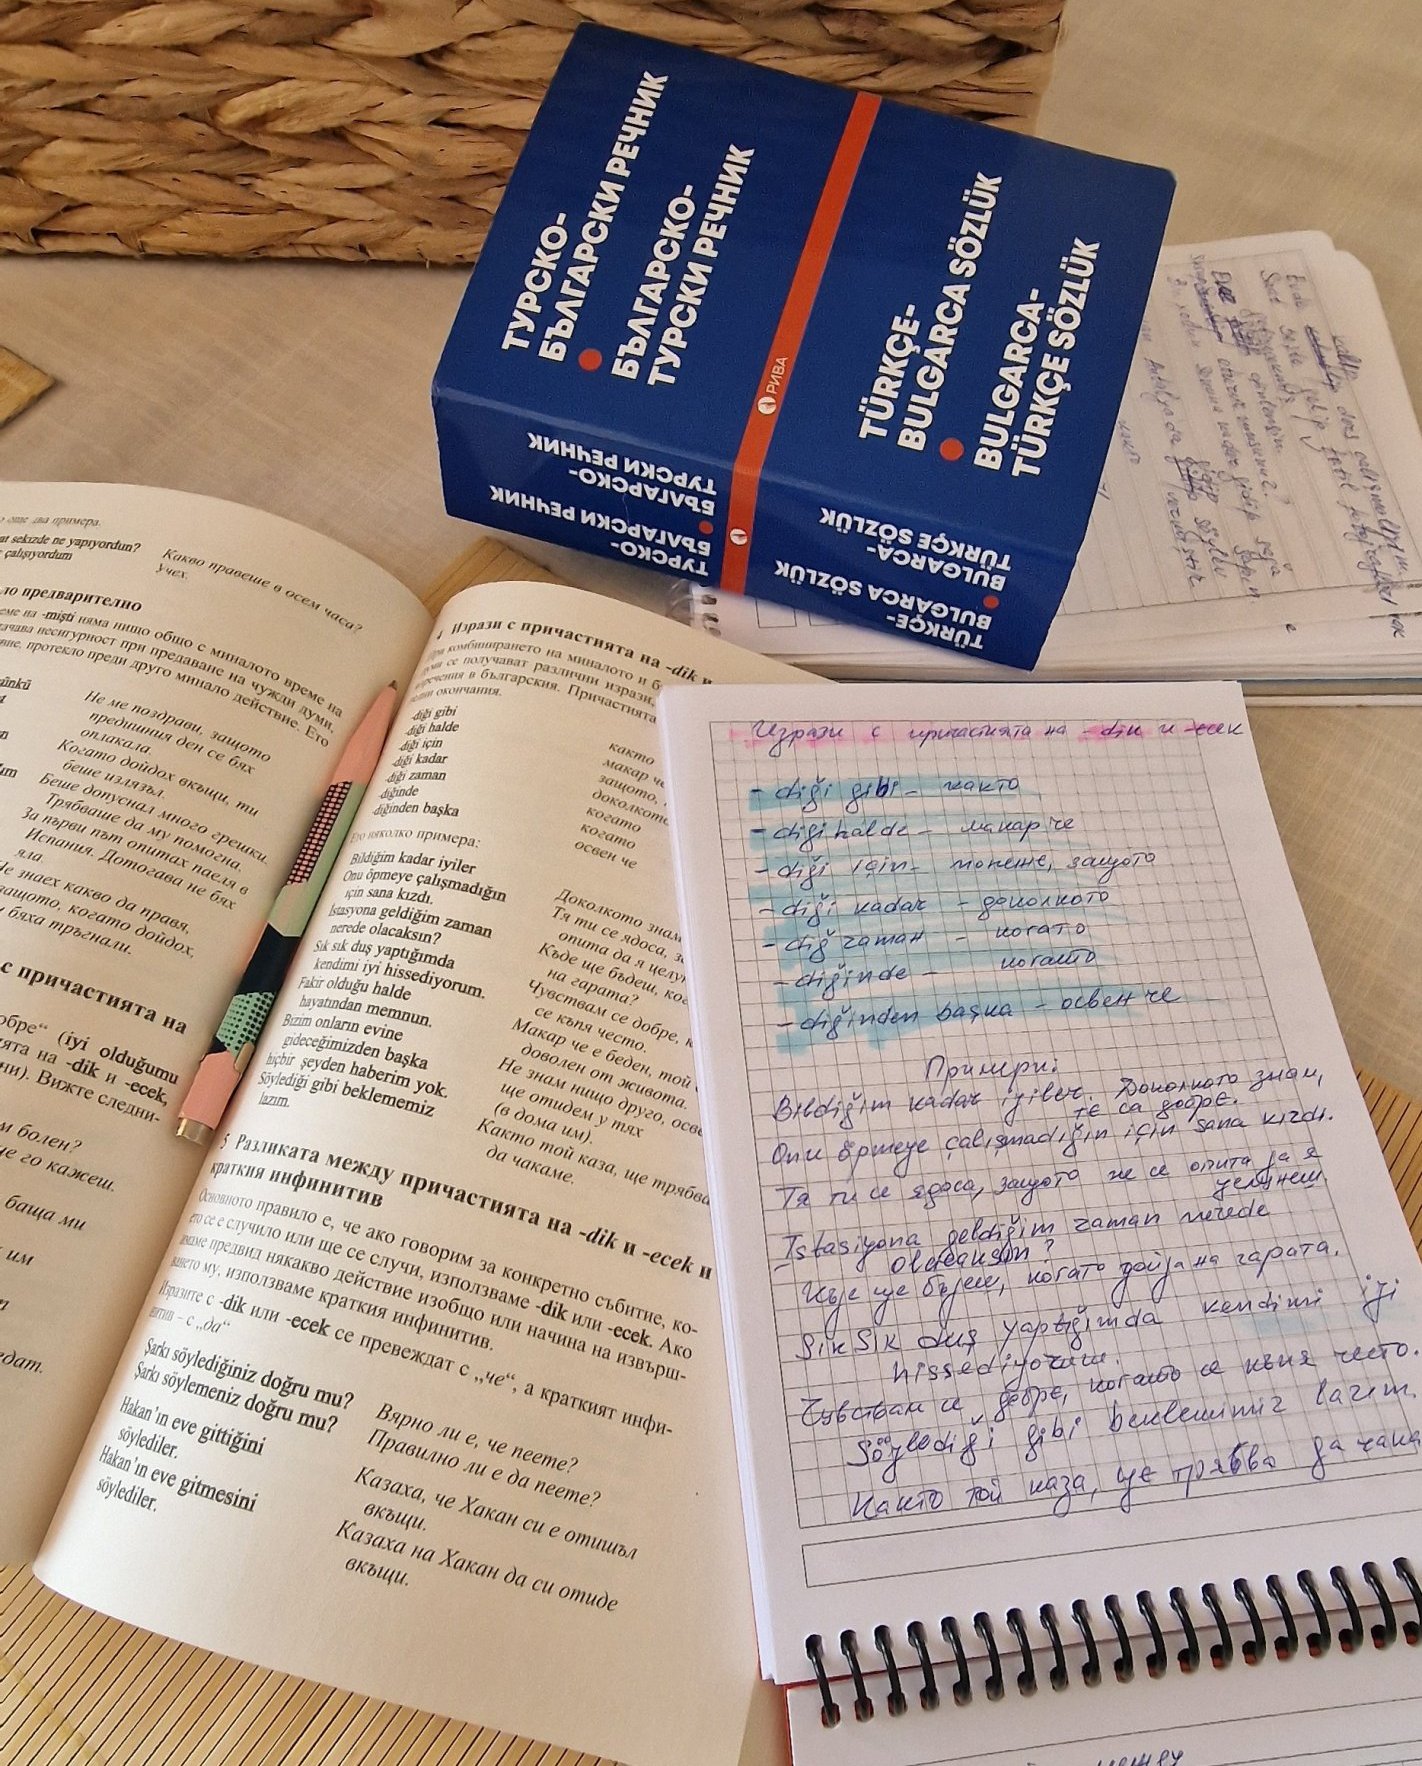 ТУРСКО-
БЪЛГАРСКИ РЕЧНИК
БЪЛГАРСКО-
ТУРСКИ РЕЧНИК
РИВА
TÜRKÇE-
BULGARCA SÖZLÜK
BULGARCA-
TÜRKÇE SÖZLÜK
ТУРСКО-
БЪЛГАРСКИ РЕЧНИК
БЪЛГАРСКО-
ТУРСКИ РЕЧНИК
TÜRKÇE-
BULGARCA SÖZLÜK
BULGARCA-
TÜRKÇE SÖZLÜK
още два примера.
sekizde ne yapıyordun?
çalışıyordum
Какво правеше в осем часа?
Учех.
предварително
-mişti няма нищо общо с миналото време на
несигурност при предаване на чужди думи,
протекло преди друго минало действие. Ето
Не ме поздрави, защото
предишния ден се бях
оплакала.
Когато дойдох вкъщи, ти
беше излязъл.
Беше допуснал много грешки.
Трябваше да му помогна.
За първи път опитах паеля в
Испания. Дотогава не бях
яла.
Не знаех какво да правя,
защото, когато дойдох,
бяха тръгнали.
с причастията на
(iyi olduğumu
на -dik и -ecek,
Вижте следни-
болен?
го кажеш.
баща ми
им
4 Изрази с причастията на -dik и
комбинирането на миналото и
се получават различни изрази,
в българския. Причастията
окончания.
-diği gibi
-diği halde
-diği için
-diği kadar
-diği zaman
-diğinde
-diğinden başka
както
макар че
защото,
доколкото
когато
когато
освен че
Ето няколко примера:
Bildiğim kadar iyiler
Onu öpmeye çalışmadığın
için sana kızdı.
İstasyona geldiğim zaman
nerede olacaksın?
Sık sık duş yaptığımda
kendimi iyi hissediyorum.
Fakir olduğu halde
hayatından memnun.
Bizim onların evine
gideceğimizden başka
hiçbir şeyden haberim yok.
Söylediği gibi beklememiz
lazım.
Доколкото знам
Тя ти се ядоса,
опита да я
Къде ще бъдеш,
на гарата?
Чувствам се добре,
се къпя често.
Макар че е беден, той
доволен от живота.
Не знам нищо друго,
ще отидем у тях
(в дома им).
Както той каза, ще трябва
да чакаме.
5 Разликата между причастията на -dik и -ecek и
краткия инфинитив
Основното правило е, че ако говорим за конкретно събитие, ко-
ето се е случило или ще се случи, използваме -dik или -ecek. Ако
имаме предвид някакво действие изобщо или начина на извърш-
ването му, използваме краткия инфинитив.
Изразите с -dik или -ecek се превеждат с „че“, а краткият инфи-
нитив – с „да“
Şarkı söylediğiniz doğru mu?
Şarkı söylemeniz doğru mu?
Hakan’ın eve gittiğini
söylediler.
Hakan’ın eve gitmesini
söylediler.
Вярно ли е, че пеете?
Правилно ли е да пеете?
Казаха, че Хакан си е отишъл
вкъщи.
Казаха на Хакан да си отиде
вкъщи.
Изрази с причастията на -dik и -ecek
- diği gibi - както
- diği halde - макар че
- diği için - понеже, защото
- diği kadar - доколкото
- diğ zaman - когато
- diğinde - когато
- diğinden başka - освен че
Примери:
Bildiğim kadar iyiler. Доколкото знам,
те са добре.
Onu öpmeye çalışmadığın için sana kızdı.
Тя ти се ядоса, защото не се опита да я
целунеш.
İstasiyona geldiğim zaman nerede
olacaksın?
Къде ще бъдеш, когато дойда на гарата.
Sık Sık duş yaptığımda kendimi iyi
hissediyorum.
Чувствам се добре, когато се къпя често.
Söylediği gibi beklemimiz lazım.
Както той каза, ще трябва да чака
между